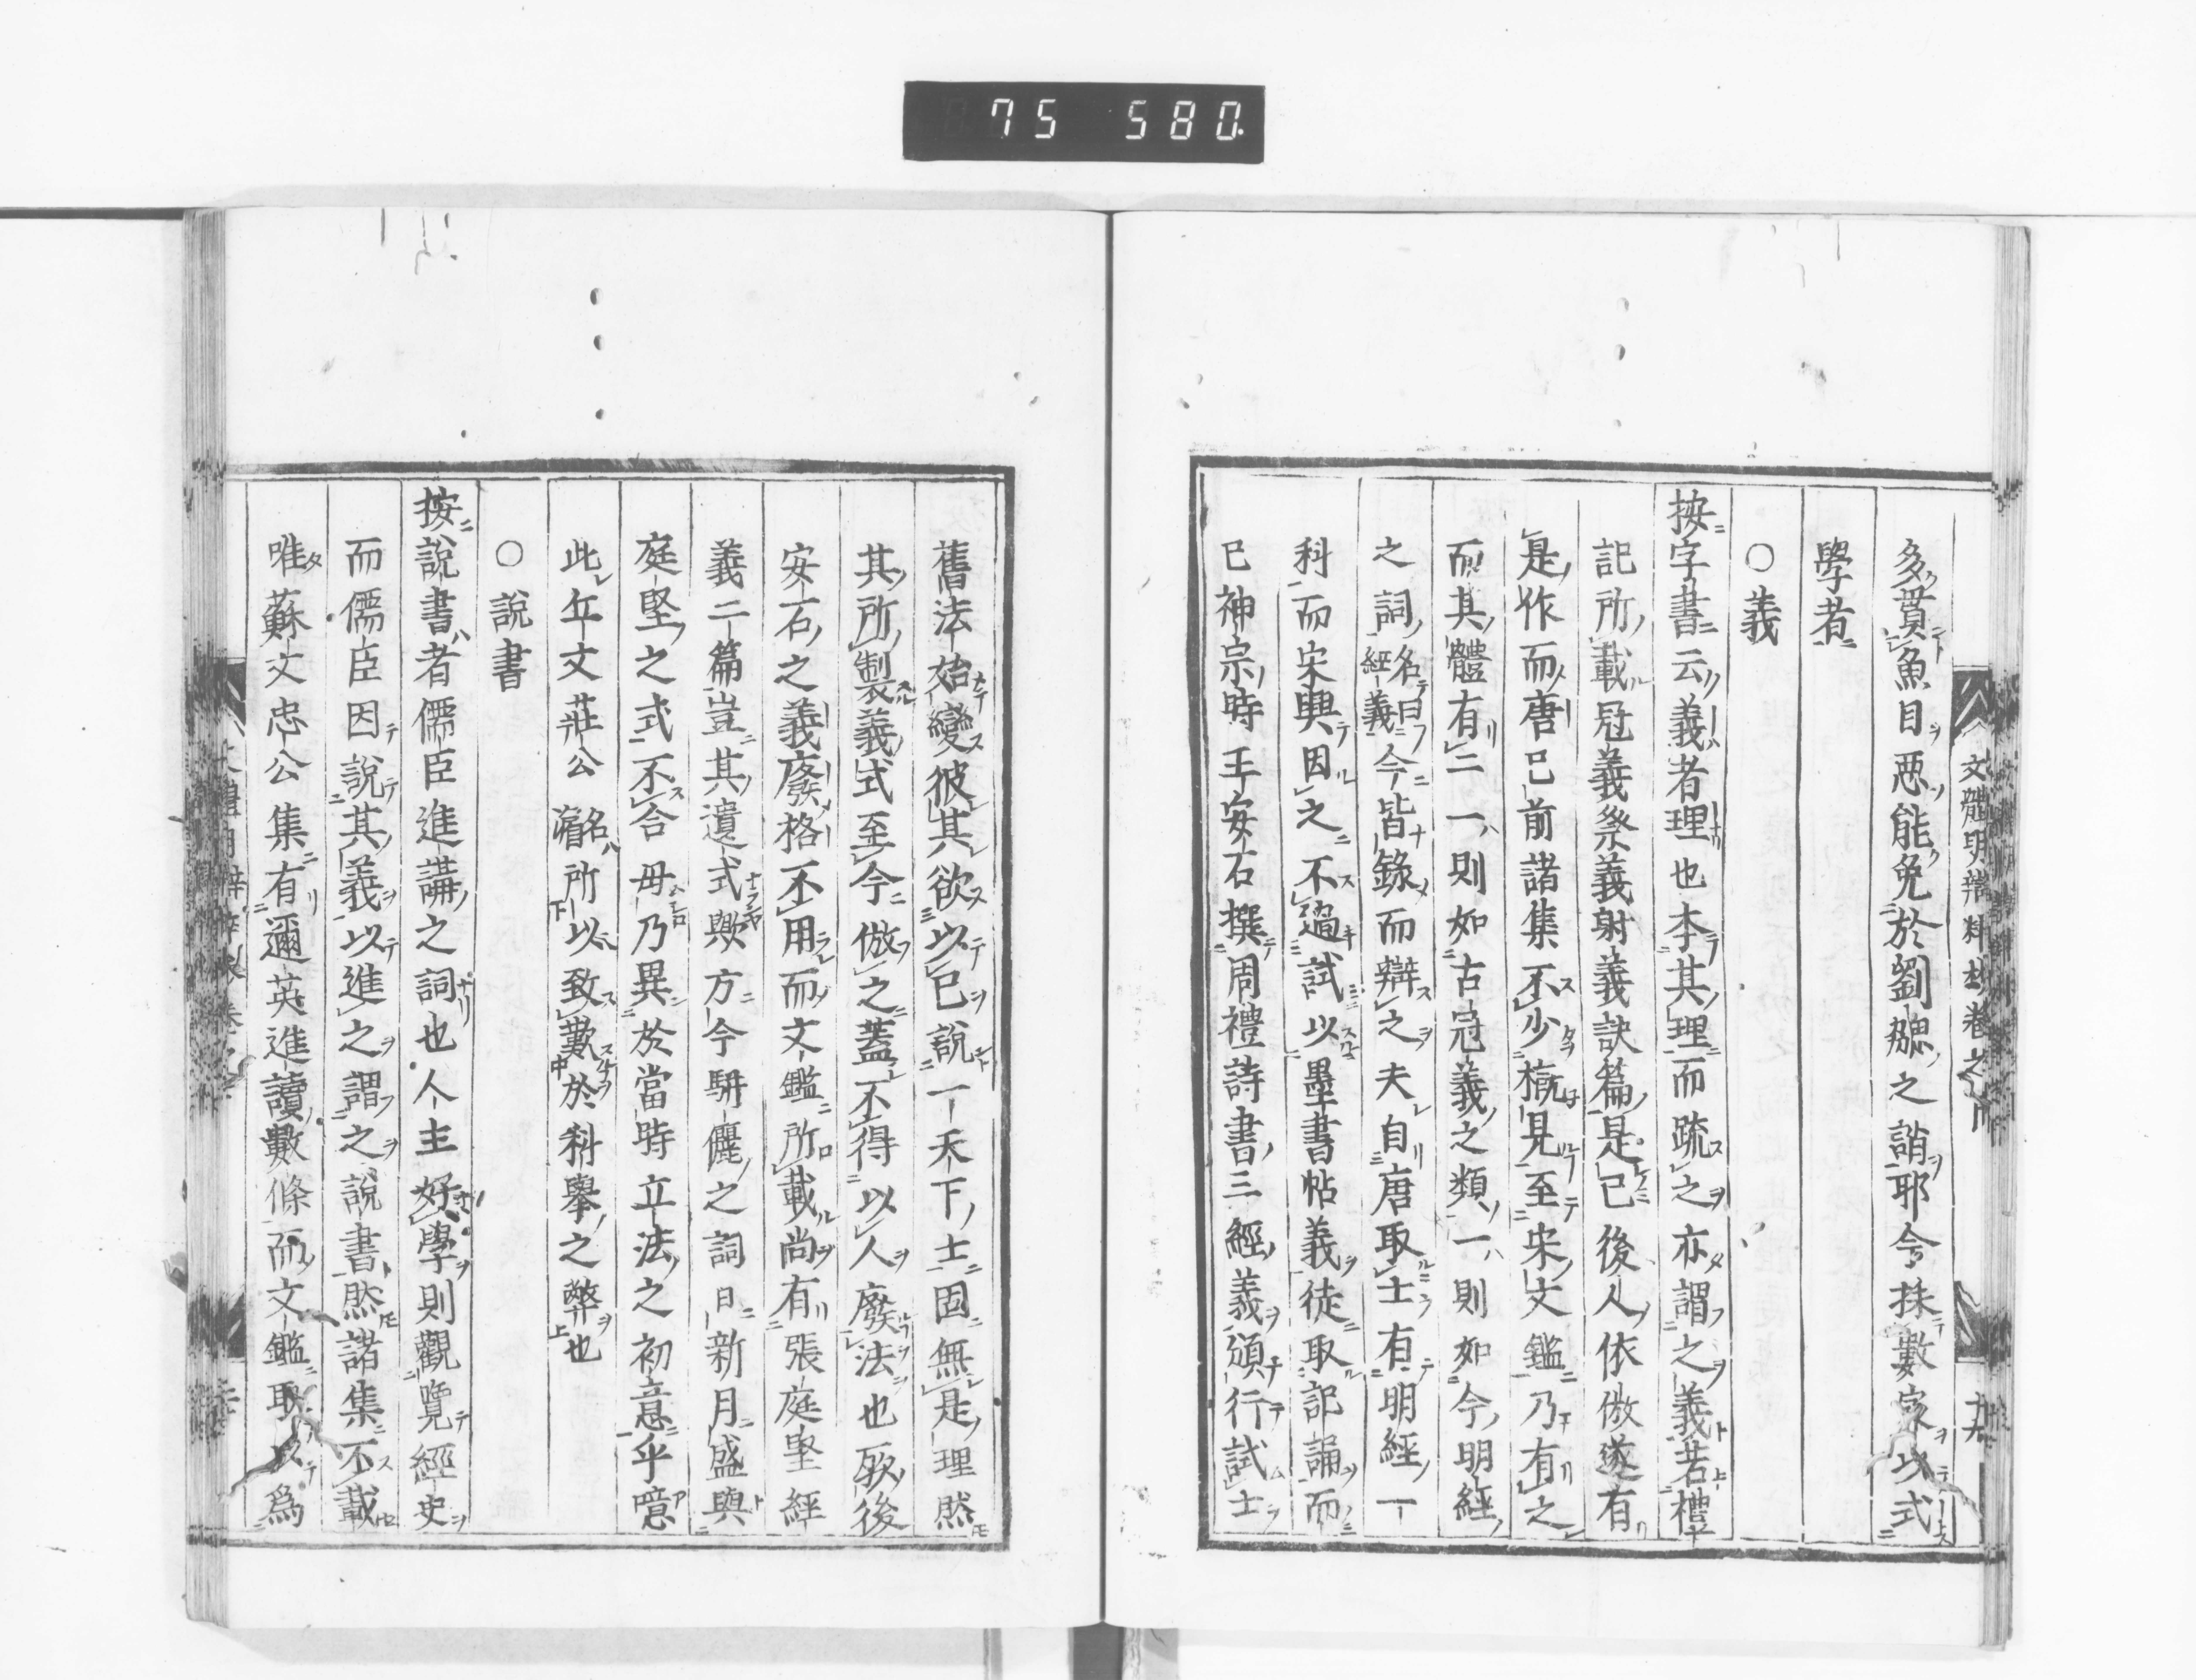 75 580.
多貫魚目惡能免於劉勰之誚耶今抹數家以式
學者
○義
按字書云義者理也本其理而疏之亦謂之義若禮
記所載冠義祭義射義諸篇是已後人依倣遂有
是作而唐已前諸集不少槪見至宋文鑑乃有之
而其體有二一則如古冠義之類一則如今明經
之詞名曰經義今皆錄而辯之夫自唐取士有明經一
科而宋興因之不過試以墨書帖義徒取記誦而
已神宗時王安石撰周禮詩書三經義頒行試士
舊法始變彼其欲以己說一天下士固無是理然
其所製義式至今倣之蓋不得以人廢法也厥後
安石之義廢格不用而文鑑所載尚有張庭堅經
義二篇豈其遺式歟方今騈儷之詞日新月盛與
庭堅之式不合毋乃異於當時立法之初意乎噫
此丘文莊公名濬所以致歎於科擧之弊也
○說書
按說書者儒臣進講之詞也人主好學則觀覽經史
而儒臣因說其義以進之謂之說書然諸集不載
唯蘇文忠公集有邇英進讀數條而文鑑取以爲
文體明辯粹抄卷之
十五